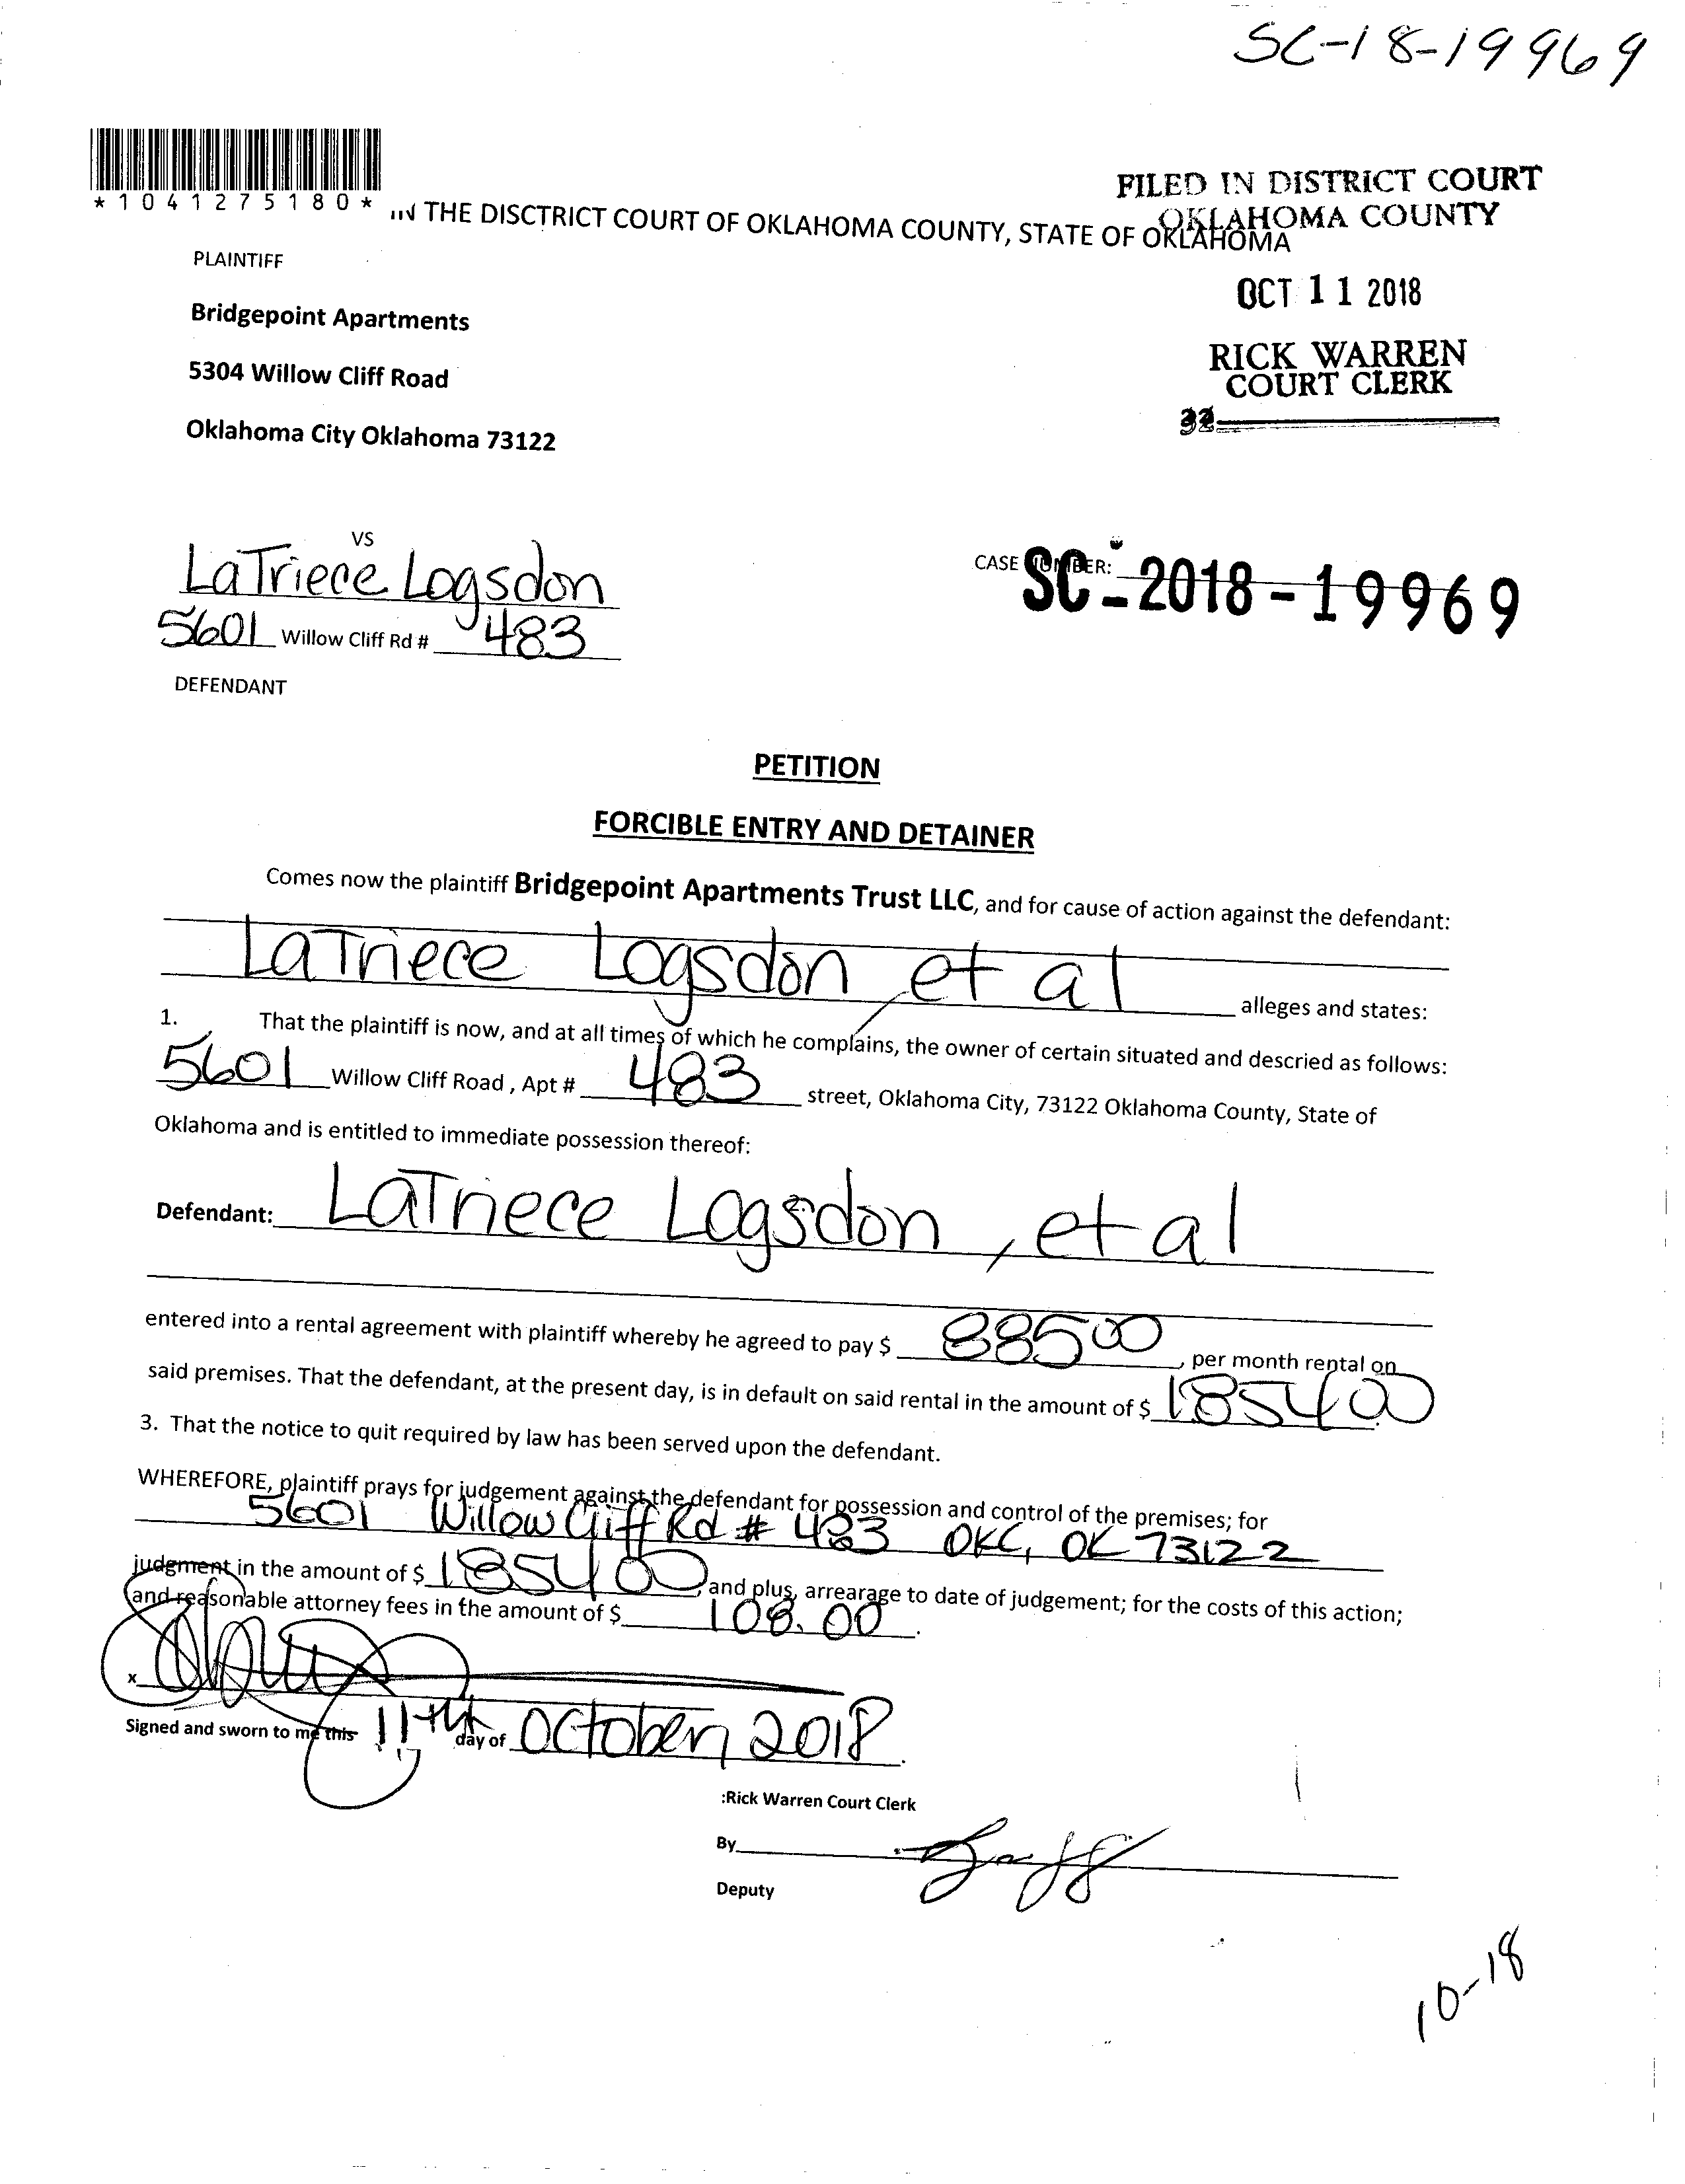 SC-18-19969
*1041275180*
FILED IN DISTRICT COURT
OKLAHOMA COUNTY
IN THE DISCTRICT COURT OF OKLAHOMA COUNTY, STATE OF OKLAHOMA
PLAINTIFF
OCT 11 2018
Bridgepoint Apartments
RICK WARREN
COURT CLERK
5304 Willow Cliff Road
Oklahoma City Oklahoma 73122
VS
LaTriece Logsdon
CASE NUMBER: SC-2018-19969
5601 Willow Cliff Rd # 483
DEFENDANT
PETITION
FORCIBLE ENTRY AND DETAINER
Comes now the plaintiff Bridgepoint Apartments Trust LLC, and for cause of action against the defendant:
LaTriece Logsdon, et al alleges and states:
1. That the plaintiff is now, and at all times of which he complains, the owner of certain situated and descried as follows:
5601 Willow Cliff Road , Apt # 483 street, Oklahoma City, 73122 Oklahoma County, State of
Oklahoma and is entitled to immediate possession thereof:
Defendant: LaTriece Logsdon, et al
entered into a rental agreement with plaintiff whereby he agreed to pay $ 885 00, per month rental on
said premises. That the defendant, at the present day, is in default on said rental in the amount of $ 1854 00
3. That the notice to quit required by law has been served upon the defendant.
WHEREFORE, plaintiff prays for judgement against the defendant for possession and control of the premises; for
5601 Willow Cliff Rd # 483 OKC, OK 73122
judgment in the amount of $ 1854 00, and plus, arrearage to date of judgement; for the costs of this action;
and reasonable attorney fees in the amount of $ 108.00.
x
Signed and sworn to me this 11th day of October 2018.
:Rick Warren Court Clerk
By
Deputy
10-18